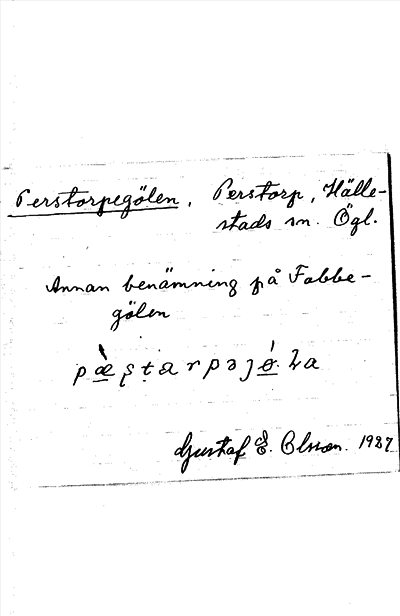 Perstorpegölen, Perstorp, Hälle-
stads sn. Ögl.
Annan benämning på Fabbe-
gölen
Gustaf E. Olsson. 1987